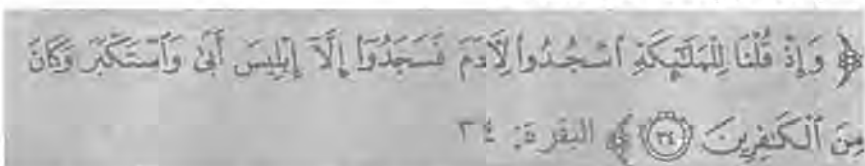 ﴿ وَإِذْ قُلْنَا لِلْمَلَٰٓئِكَةِ ٱسْجُدُوا۟ لِـَٔادَمَ فَسَجَدُوٓا۟ إِلَّآ إِبْلِيسَ أَبَىٰ وَٱسْتَكْبَرَ وَكَانَ
مِنَ ٱلْكَٰفِرِينَ ۝٣٤ ﴾ البقرة: ٣٤